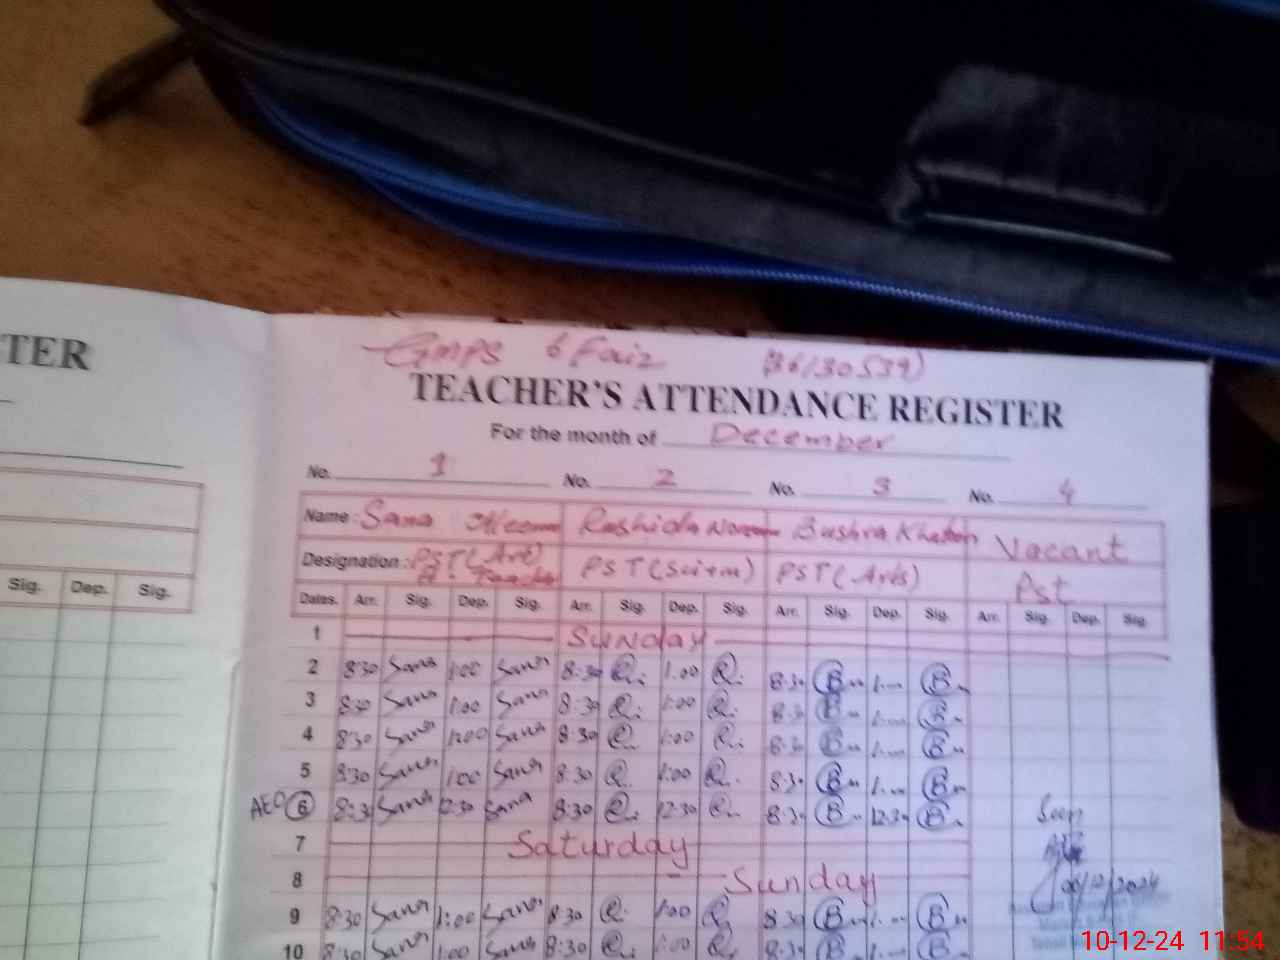 TER
Sig. Dep. Sig.
GMPS 6 Faiz (36130539)
TEACHER'S ATTENDANCE REGISTER
For the month of December
No. 1 No. 2 No. 3 No. 4
Name: Sana Rashida Bushra Vacant
Designation: PST (Art) PST (Sci+m) PST (Arts) Pst
Dates. Arr. Sig. Dep. Sig. Arr. Sig. Dep. Sig. Arr. Sig. Dep. Sig. Arr. Sig. Dep. Sig.
1 Sunday
2 8:30 Sana 1:00 Sana 8:30 R. 1:00 R. 8:30 B 1 B
3 8:30 Sana 1:00 Sana 8:30 R. 1:00 R. 8:30 B 1 B
4 8:30 Sana 1:00 Sana 8:30 R. 1:00 R. 8:30 B 1 B
5 8:30 Sana 1:00 Sana 8:30 R. 1:00 R. 8:30 B 1 B
AEO 6 8:30 Sana 12:30 Sana 8:30 R. 12:30 R. 8:30 B 12:30 B Seen
7 Saturday
8 Sunday 06/12/2024
9 8:30 Sana 1:00 Sana 8:30 R. 1:00 R. 8:30 B 1 B
10 8:30 Sana 1:00 Sana 8:30 R. 1:00 R. 8:30 B 1 B
10-12-24 11:54